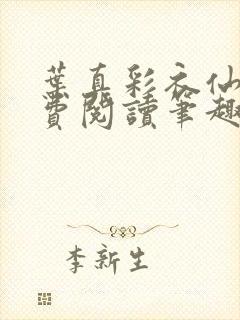 葉真彩衣仙
費閱讀筆趣
李新生